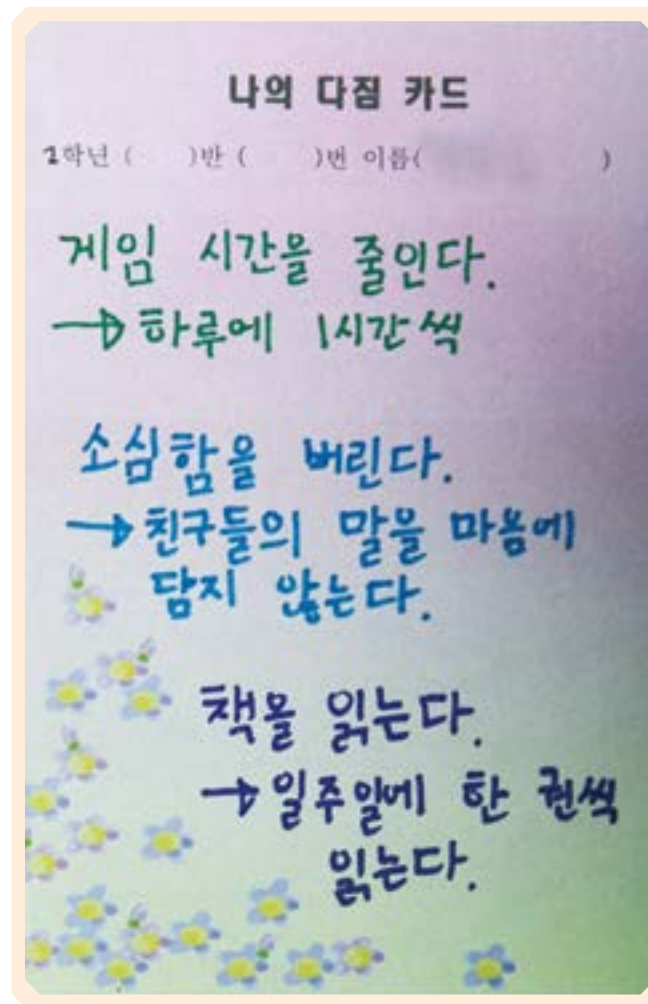 나의 다짐 카드
2학년 ( )반 ( )번 이름( )
게임 시간을 줄인다.
→ 하루에 1시간씩
소심함을 버린다.
→ 친구들의 말을 마음에
담지 않는다.
책을 읽는다.
→ 일주일에 한 권씩
읽는다.